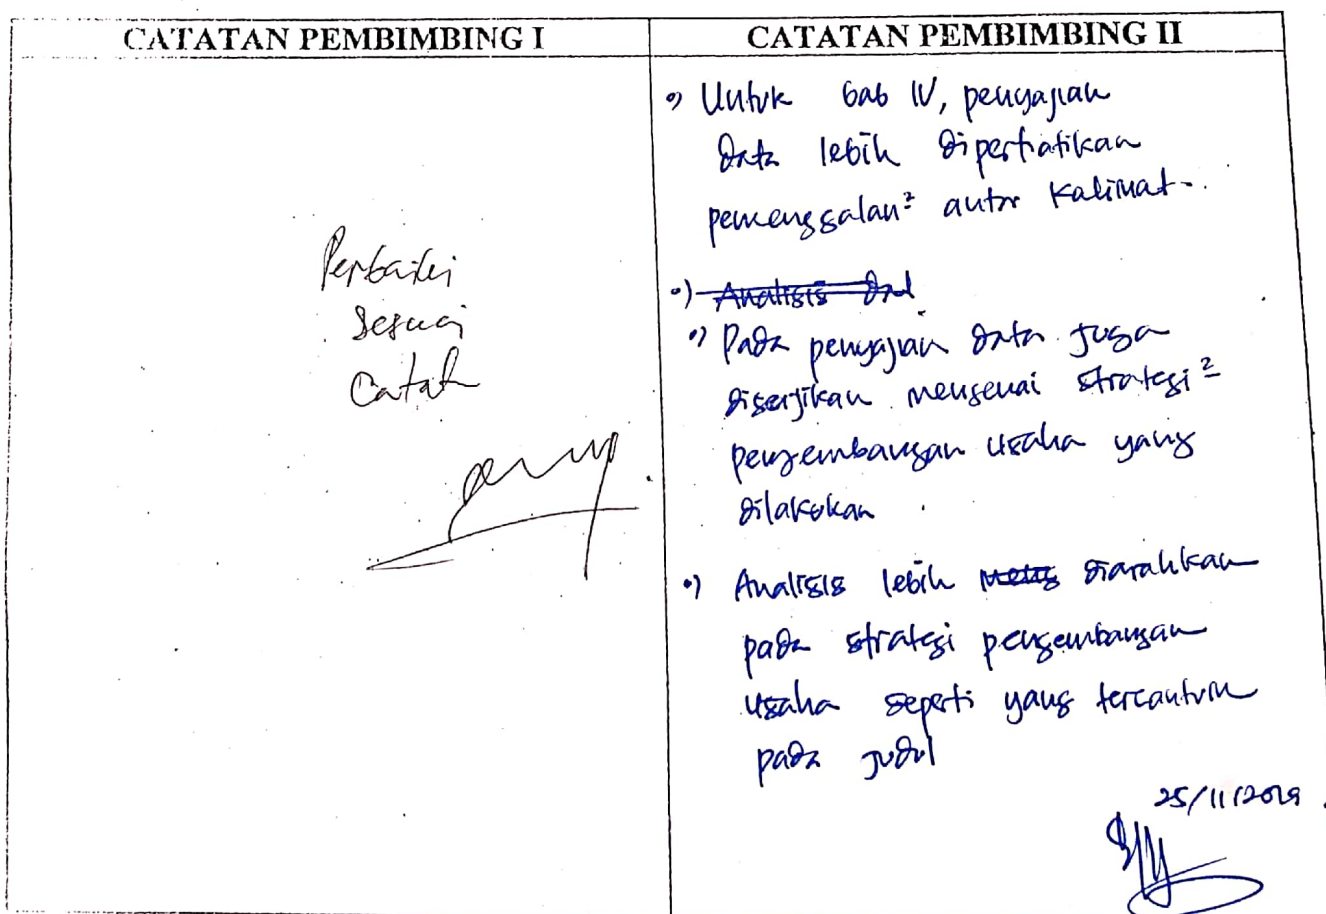 CATATAN PEMBIMBING I
Perbaiki
sesuai
Catatan
CATATAN PEMBIMBING II
•) Untuk bab IV, penyajian
data lebih diperhatikan
pemenggalan² antar kalimat.
•) Analisis
•) Pada penyajian data juga
disajikan mengenai strategi²
pengembangan usaha yang
dilakukan
•) Analisis lebih diarahkan
pada strategi pengembangan
usaha seperti yang tercantum
pada judul
25/11/2019